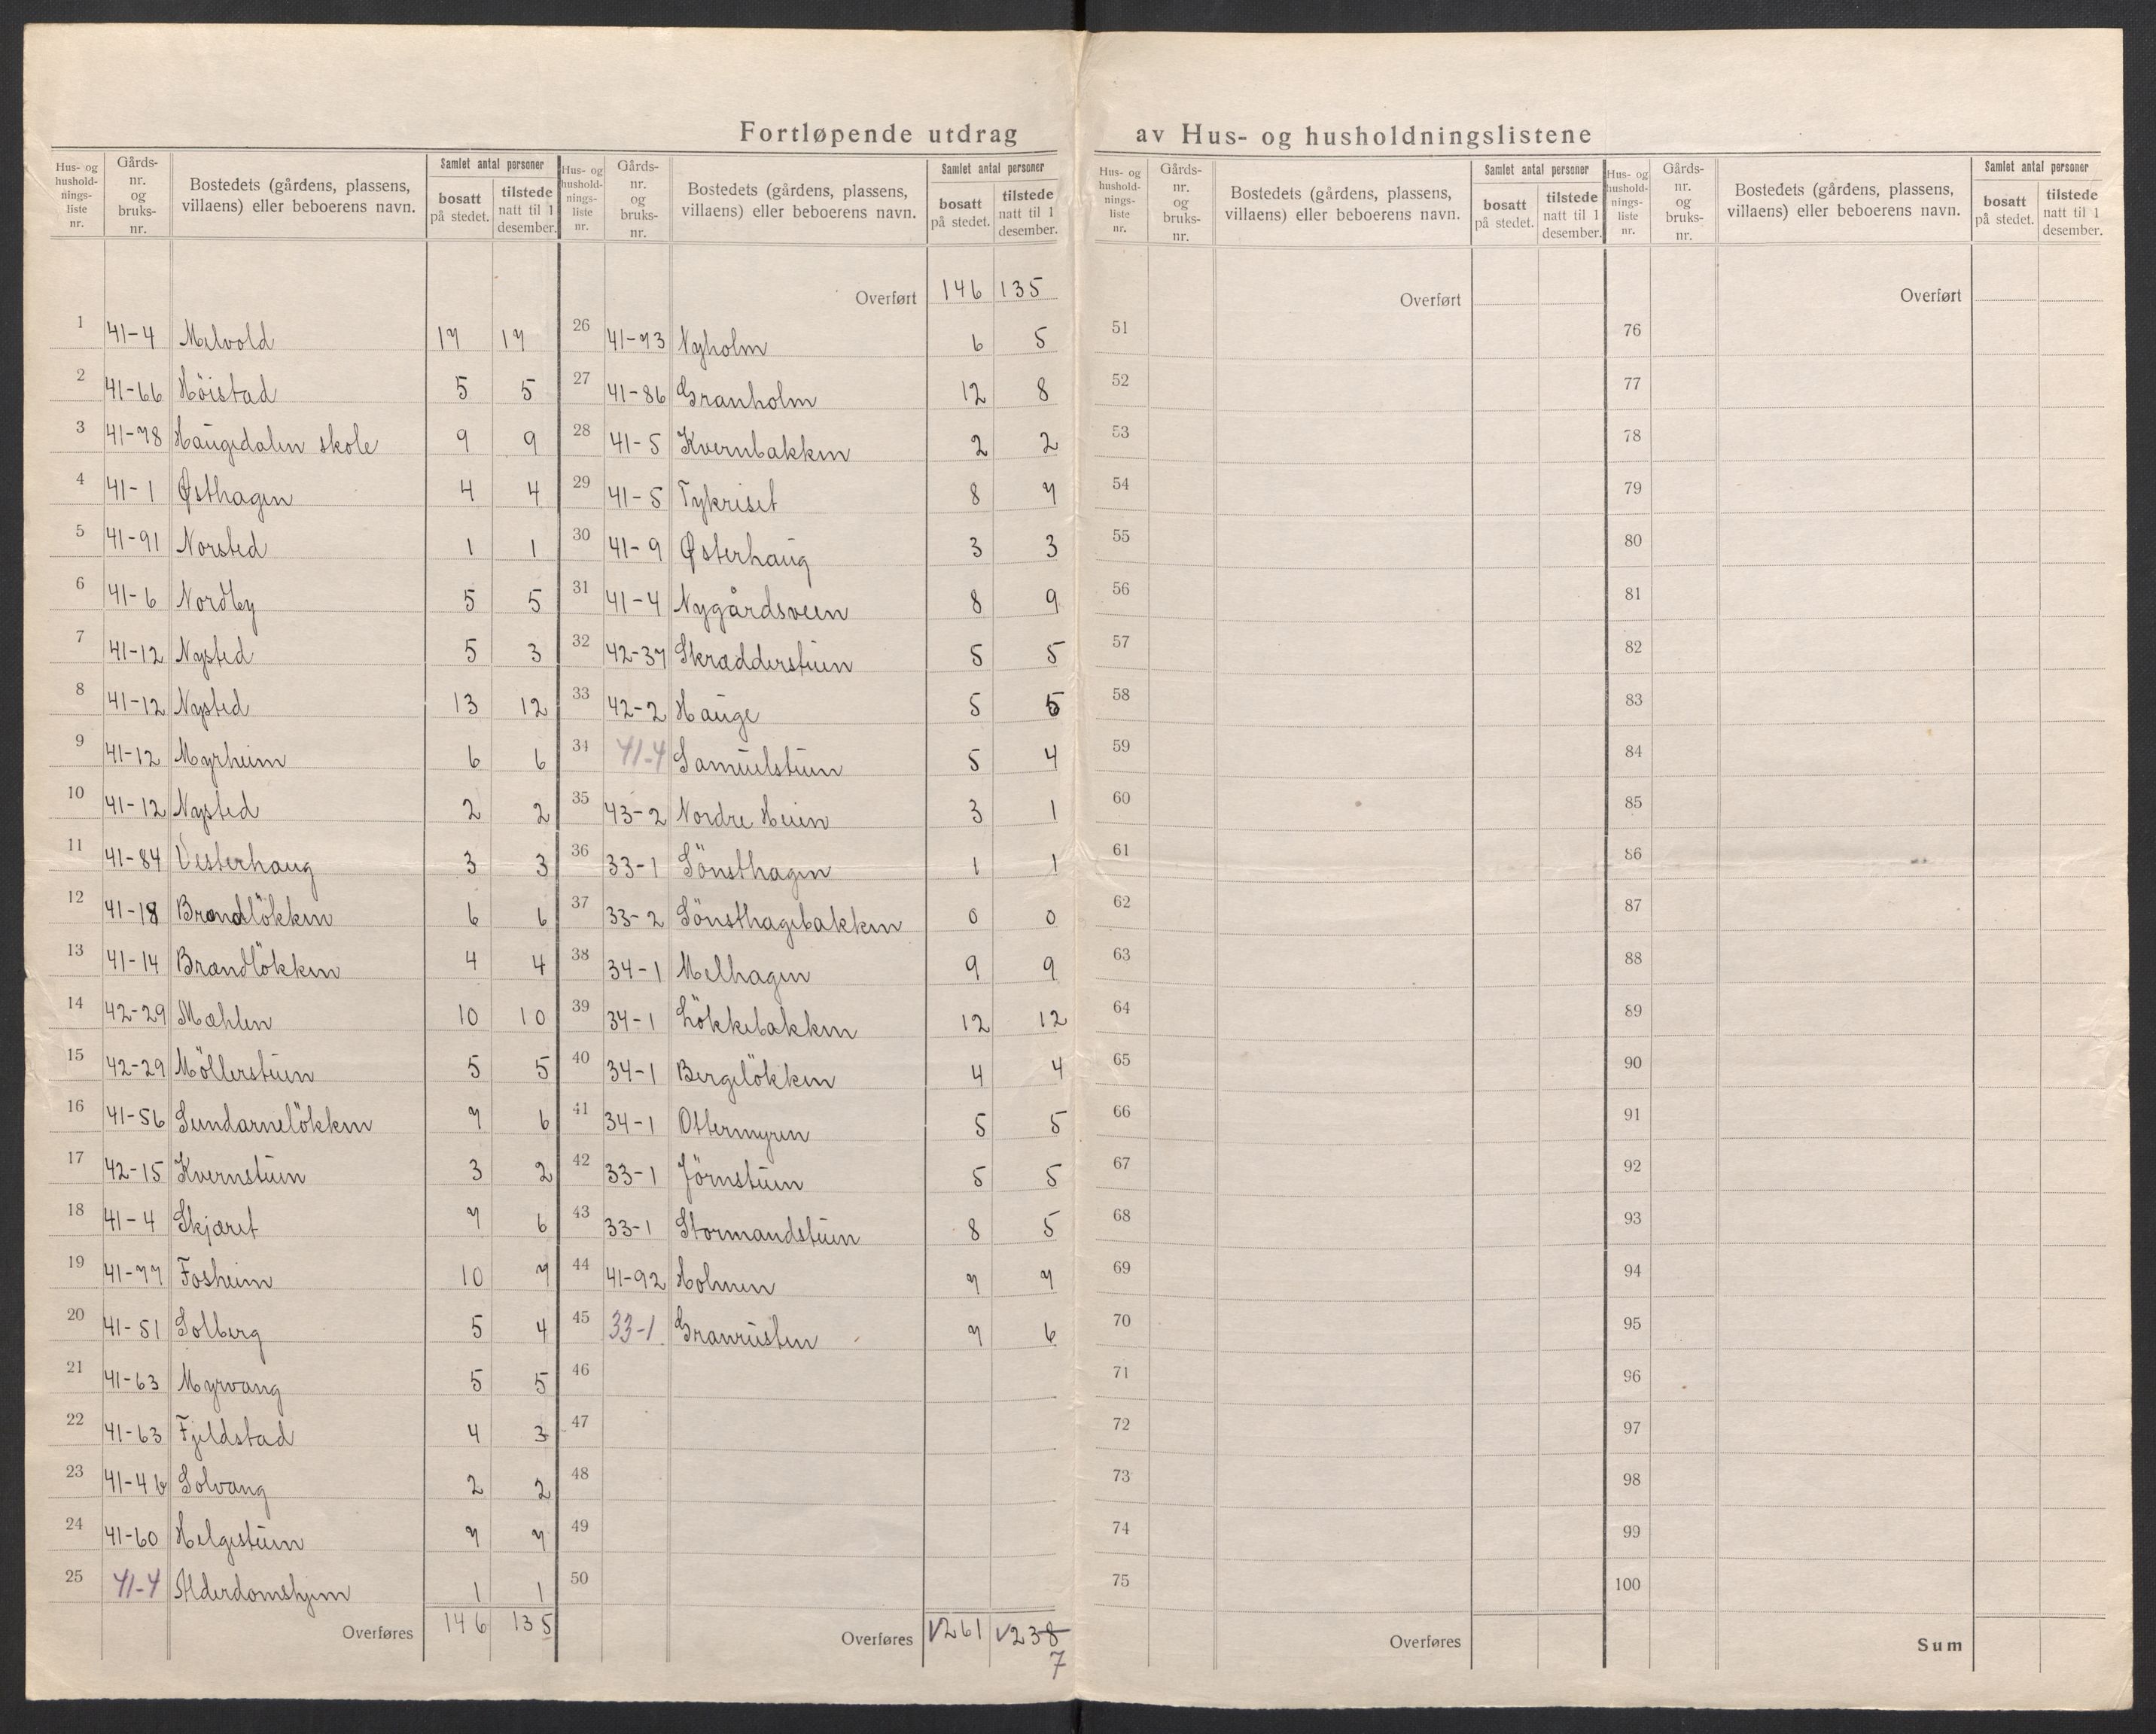 Fortløpende utdrag av Hus- og husholdningslistene
Hus- og hushold-nings-liste nr. | Gårds-nr. og bruks-nr. | Bostedets (gårdens, plassens, villaens) eller beboerens navn. | Samlet antal personer | bosatt på stedet. | tilstede natt til 1 desember.
1 41-4 Melvold 17 17
2 41-66 Höistad 5 5
3 41-78 Haugedalen skole 9 9
4 41-1 Østhagen 4 4
5 41-91 Norsted 1 1
6 41-6 Nordby 5 5
7 41-12 Nysted 5 3
8 41-12 Nysted 13 12
9 41-12 Myrheim 6 6
10 41-12 Nysted 2 2
11 41-84 Vesterhaug 3 3
12 41-18 Brændlökken 6 6
13 41-14 Brændlökken 4 4
14 42-29 Mæhlen 10 10
15 42-29 Möllerstuen 5 5
16 41-56 Sundarnelökken 7 6
17 42-15 Kvernstuen 3 2
18 41-4 Skjæret 7 6
19 41-77 Fosheim 10 7
20 41-51 Solberg 5 4
21 41-63 Myrvang 5 5
22 41-63 Fjeldstad 4 3
23 41-46 Solvang 2 2
24 41-60 Helgestuen 7 7
25 41-4 Alderdomshjem 1 1
Overføres 146 135
Hus- og hushold-nings-liste nr. | Gårds-nr. og bruks-nr. | Bostedets (gårdens, plassens, villaens) eller beboerens navn. | Samlet antal personer | bosatt på stedet. | tilstede natt til 1 desember.
Overført 146 135
26 41-73 Nyholm 6 5
27 41-86 Granholm 12 8
28 41-5 Kvernbakken 2 2
29 41-5 Tykriset 8 7
30 41-9 Østerhaug 3 3
31 41-4 Nygårdsveen 8 9
32 42-37 Skrædderstuen 5 5
33 42-2 Hauge 5 5
34 41-4 Samuelstuen 5 4
35 43-2 Nordre Heien 3 1
36 33-1 Sönsthagen 1 1
37 33-2 Sönsthagebakken 0 0
38 34-1 Melhagen 9 9
39 34-1 Lökkebakken 12 12
40 34-1 Bergelökken 4 4
41 34-1 Ottermyren 5 5
42 33-1 Jörnstuen 5 5
43 33-1 Stormandstuen 8 5
44 41-92 Holmen 7 7
45 33-1 Granrusten 7 6
46
47
48
49
50
Overføres √261 √238
7
Hus- og hushold-nings-liste nr. | Gårds-nr. og bruks-nr. | Bostedets (gårdens, plassens, villaens) eller beboerens navn. | Samlet antal personer | bosatt på stedet. | tilstede natt til 1 desember.
Overført
51
52
53
54
55
56
57
58
59
60
61
62
63
64
65
66
67
68
69
70
71
72
73
74
75
Overføres
Hus- og hushold-nings-liste nr. | Gårds-nr. og bruks-nr. | Bostedets (gårdens, plassens, villaens) eller beboerens navn. | Samlet antal personer | bosatt på stedet. | tilstede natt til 1 desember.
Overført
76
77
78
79
80
81
82
83
84
85
86
87
88
89
90
91
92
93
94
95
96
97
98
99
100
Sum